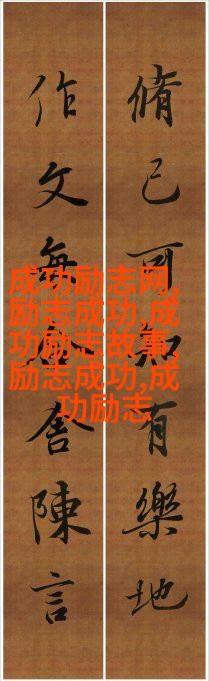 脩己可知有樂地
作文無舍陳言
成功励志网,
励志成功,成
功励志故事,
励志成功,成
功励志